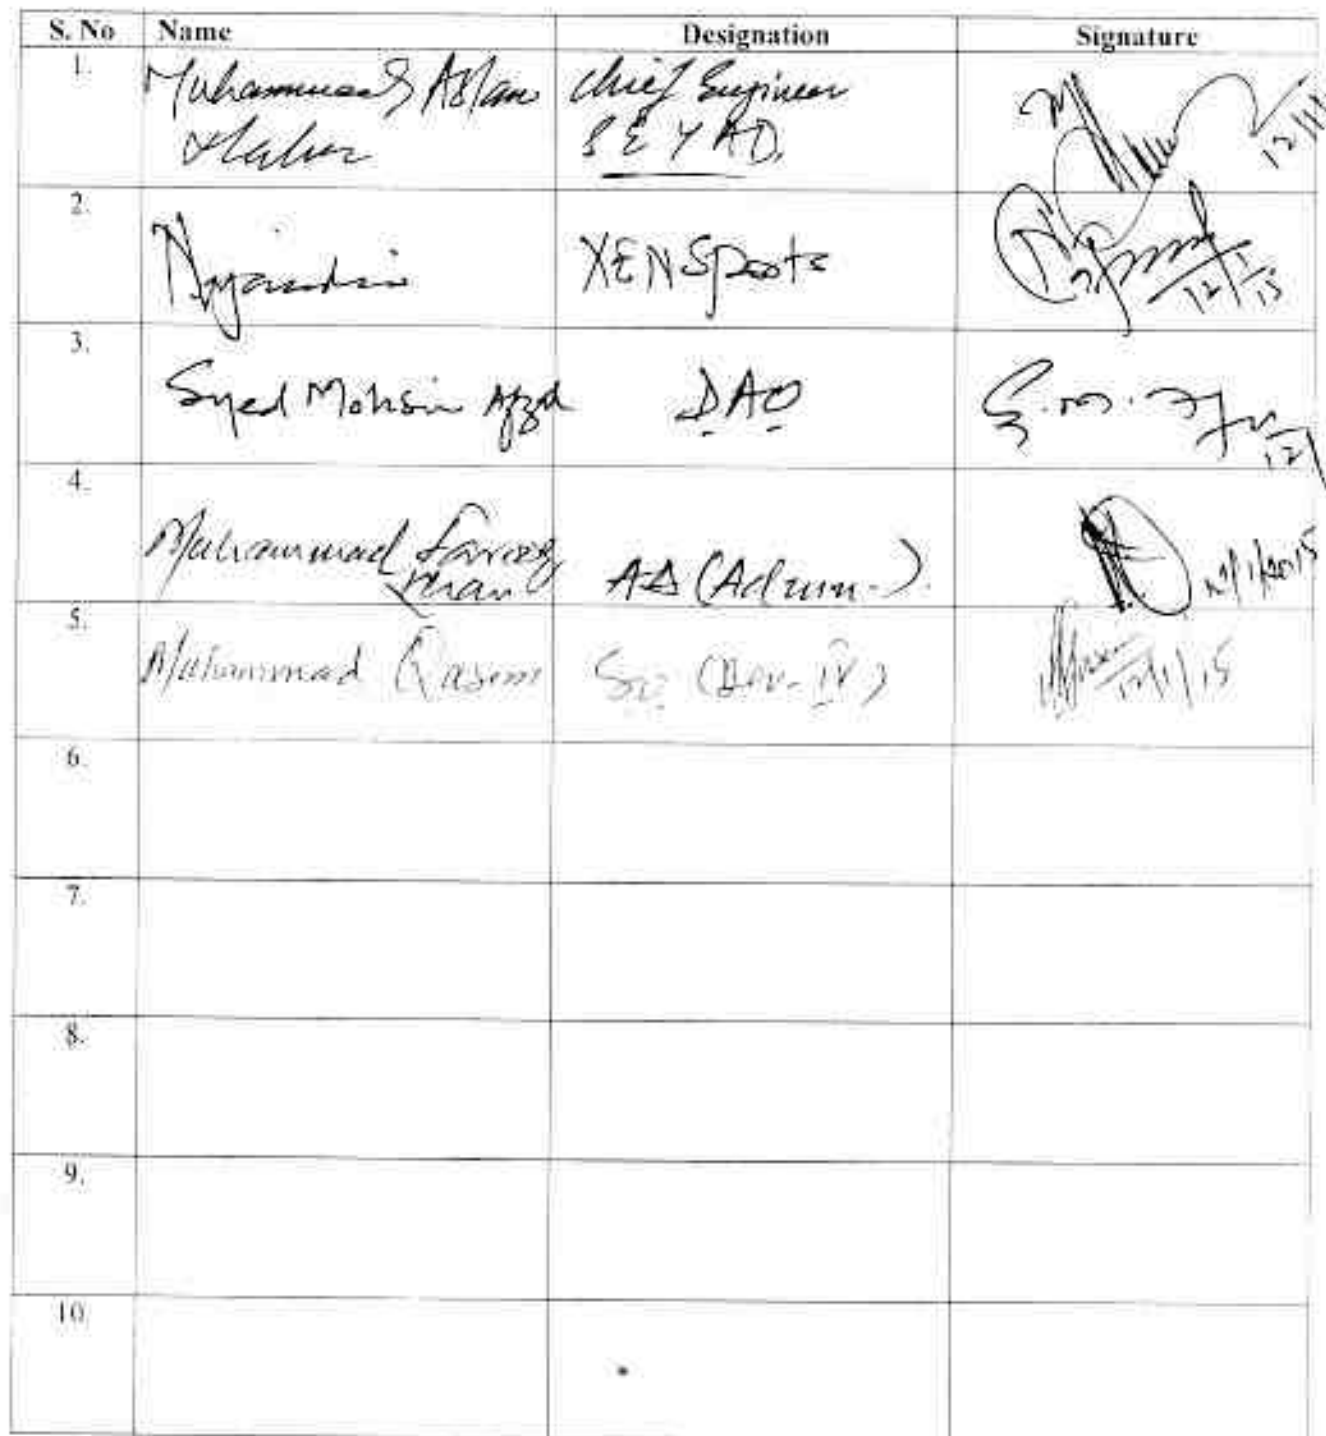 S. No Name Designation Signature
1. Muhammad Aslam Chief Engineer
S E Y A D. 12/1/
2. XEN Sports 12/1/15
3. Syed Mohsin Afzal DAO S.M. 12/1
4. Muhammad Farooq AD (Admn.). 12/1/2015
Khan
5. Muhammad Qasim SO (Dev-IV) 12/1/15
6.
7.
8.
9.
10.